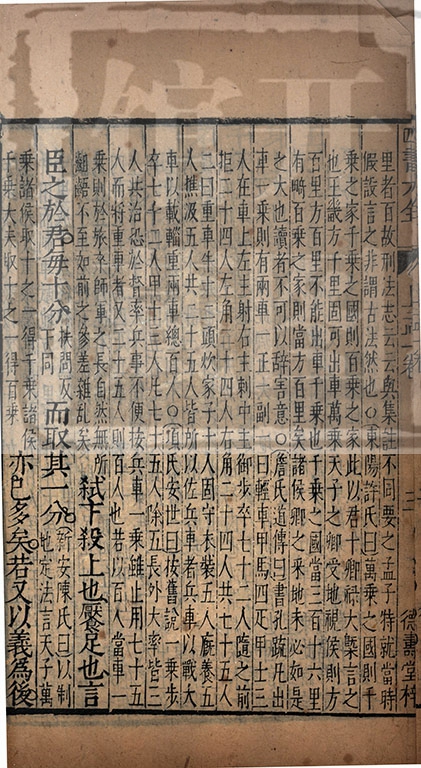 四書大全 上孟一卷 三 德壽堂梓
里者百故刑法志云云與集註不同要之孟子特就當時
假設言之非謂古法然也○東陽許氏曰萬乘之國則千
乘之家千乘之國則百乘之家此以君十卿祿大槩言之
也王畿方千里固可出車萬乘天子之卿受地視侯則方
百里方百里不能出車千乘也千乘之國當三百十六里
有畸百乘之家則當方百里矣諸侯卿之采地未必如是
之大也讀者不可以辭害意○詹氏道傳曰書孔疏凡出
車一乘則有兩車一正一副一曰輕車甲馬四疋甲士三
人在車上左主射右主刺中主御步卒七十二人隨之前
拒二十四人左角二十四人右角二十四人共七十五人
二曰重車牛十二頭炊家子十人固守衣裝五人廐養五
人樵汲五人共二十五人皆所以佐兵車者兵車以戰大
車以載輜重兩車總百人○項氏安世曰按舊說一乗步
卒七十二人甲士三人凡七十五人除五長外大率皆三
人共治恐於督率兵事不便按兵車一乗雖止用七十五
人而將重車者又二十五人則百人也若以百人當車一
乗則於旅卒師車之長自然無
齟齬不至如前之參差雜乱矣 弒下殺上也饜足也言
臣之於君毎十分 扶問反
下同 而取其一分 新安陳氏曰以制
地定法言天子萬
乗諸侯取十之一得千乗諸侯
千乗大夫取十之一得百乗 亦已多矣若又以義爲後